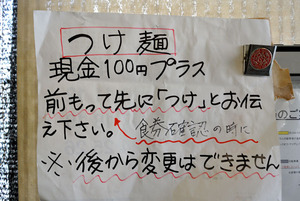 つけ麺
現金100円プラス
前もって先に「つけ」とお伝
え下さい。
食券確認の時に
※後から変更はできません